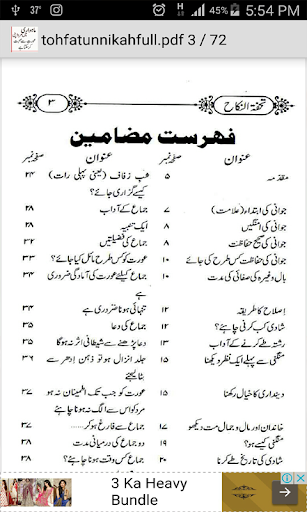 37°
45%
5:54 PM
tohfatunnikahfull.pdf 3 / 72
تحفۃ النکاح
۳
فہرست مضامین
عنوان
صفحہ نمبر
مقدمہ ۵
جوانی کی ابتداء (علامت) ۷
جوانی کی امنگیں ۸
جوانی کی صحیح حفاظت ۸
جوانی کی حفاظت کس طرح کی جائے؟ ۱۰
بال وغیرہ کی صفائی کی مدت ۱۰
اصلاح کا طریقہ ۱۲
شادی کب کرنی چاہئے؟ ۱۲
رشتہ طے کرنے کے آداب ۱۳
منگنی سے پہلے ایک نظر دیکھنا ۱۵
دینداری کا خیال رکھنا ۱۵
خاندان اور مال و جمال مت دیکھو ۱۷
منگنی کیسے ہو؟
شادی کی تاریخ طے کرنا ۲۰
عنوان
صفحہ نمبر
شب زفاف (یعنی پہلی رات) ۲۴
کیسے گزاری جائے؟
جماع کے آداب ۲۸
ایک تنبیہ ۲۸
جماع کی فضیلتیں ۳۲
عورت کو کس طرح مائل کیا جائے؟ ۳۳
جماع کیلئے عورت کی آمادگی ضروری
ہے
تنہائی ہونا ضروری ہے ۳۴
جماع کی دعا ۳۴
دعا پڑھنے سے شیطانی اثر نہ ہوگا ۳۵
جلد انزال ہو تو ذہن ادھر سے ۳۶
ہٹا لیجئے
عورت کو جب تک اطمینان نہ ہو ۳۷
مرد کو اس سے الگ نہ ہونا چاہئے
جماع سے فارغ ہو کر.... ۳۷
دو جماع کی درمیانی مدت ۳۸
جماع کس وقت ہونا چاہئے؟ ۳۸
3 Ka Heavy
Bundle